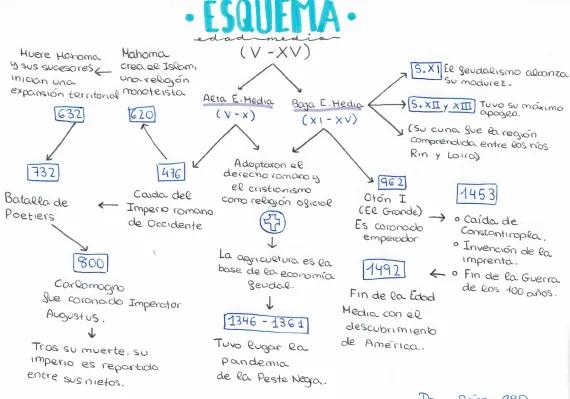 • ESQUEMA •
edad media
(V-XV)
Muere Mahoma
y sus sucesores
inician una
expansión territorial
632
Mahoma
crea el Islam:
una religión
monoteista
620
Alta E. Media
(V-X)
Baja E. Media
(XI-XV)
S.XI El feudalismo alcanza
su madurez.
S.XII y XIII Tuvo su máximo
apogeo.
(Su cuna fue la región
comprendida entre los ríos
Rin y Loira)
732
Batalla de
Poetiers
476
Caída del
Imperio romano
de Occidente
Adoptaron el
derecho romano y
el cristianismo
como religión oficial
962
Otón I
(El Grande)
Es coronado
emperador
1453
Caída de
Constantinopla.
Invención de la
imprenta.
Fin de la Guerra
de los 100 años.
800
Carlomagno
fue coronado Imperator
Augustus.
Tras su muerte, su
imperio es repartido
entre sus nietos.
La agricultura es la
base de la economía
feudal.
1346-1361
Tuvo lugar la
pandemia
de la Peste Negra.
1492
Fin de la Edad
Media con el
descubrimiento
de América.